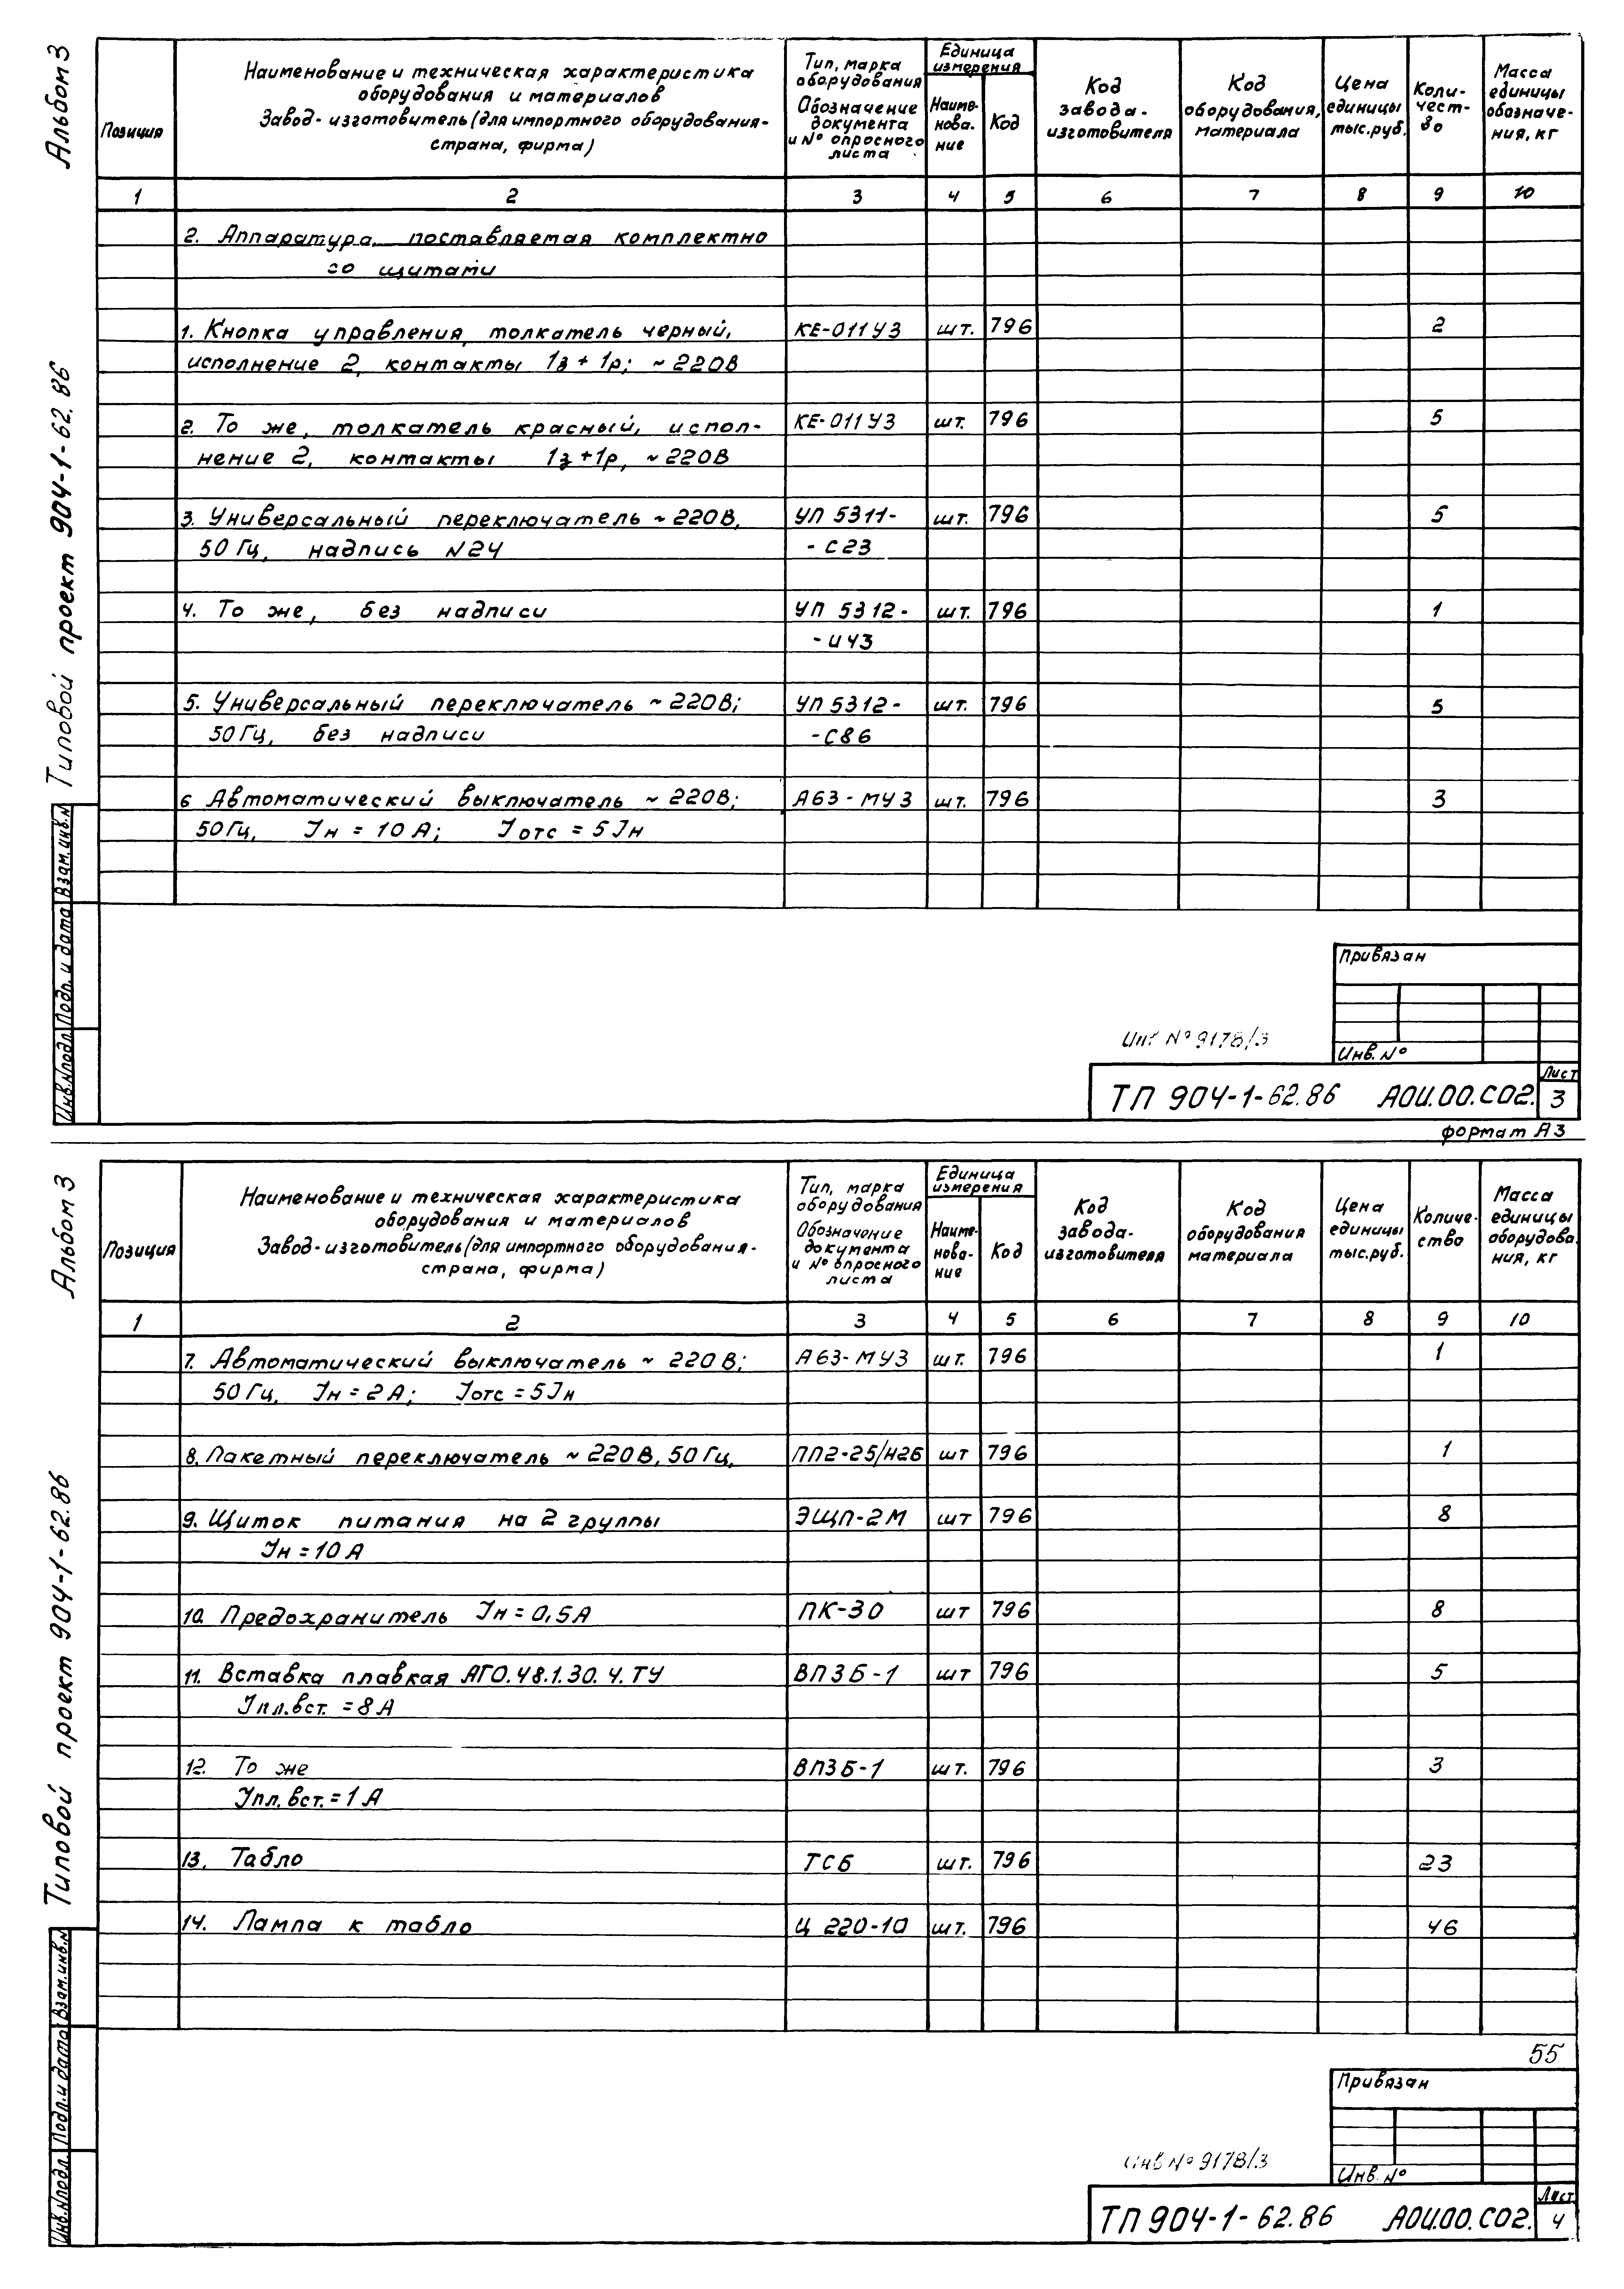 Альбом 3
Типовой проект 904-1-62.86
Взам.инв.N
Подп. и дата
Инв.Nподл.
Позиция
Наименование и техническая характеристика
оборудования и материалов
Завод-изготовитель (для импортного оборудования-
страна, фирма)
Тип, марка
оборудования
Обозначение
документа
и № опросного
листа
Единица
измерения
Наиме-
нова-
ние
Код
Код
завода-
изготовителя
Код
оборудования,
материала
Цена
единицы
тыс.руб.
Коли-
чест-
во
Масса
единицы
обозначе-
ния, кг
1 2 3 4 5 6 7 8 9 10
2. Аппаратура, поставляемая комплектно
со щитами
1. Кнопка управления, толкатель черный, КЕ-011У3 шт. 796 2
исполнение 2, контакты 1з + 1р; ~ 220В
2. То же, толкатель красный, испол- КЕ-011У3 шт. 796 5
нение 2, контакты 1з+1р, ~ 220В
3. Универсальный переключатель ~ 220В, УП 5311- шт. 796 5
50 Гц, надпись N24 -С23
4. То же, без надписи УП 5312- шт. 796 1
-И43
5. Универсальный переключатель ~ 220В; УП 5312- шт. 796 5
50Гц, без надписи -С86
6 Автоматический выключатель ~ 220В; А63-МУ3 шт. 796 3
50Гц, Iн = 10 А; Iотс = 5 Iн
Привязан
Инв. №
Инв № 9178/3
ТП 904-1-62.86 АОИ.00.СО2.
Лист
3
формат А3
Альбом 3
Типовой проект 904-1-62.86
Взам.инв.N
Подп. и дата
Инв.Nподл.
Позиция
Наименование и техническая характеристика
оборудования и материалов
Завод-изготовитель (для импортного оборудования-
страна, фирма)
Тип, марка
оборудования
Обозначение
документа
и № опросного
листа
Единица
измерения
Наиме-
нова-
ние
Код
Код
завода-
изготовителя
Код
оборудования
материала
Цена
единицы
тыс.руб.
Количе-
ство
Масса
единицы
оборудова
ния, кг
1 2 3 4 5 6 7 8 9 10
7. Автоматический выключатель ~ 220 В; А63-МУ3 шт. 796 1
50 Гц, Iн = 2 А; Iотс = 5 Iн
8. Пакетный переключатель ~ 220 В, 50 Гц, ПП2-25/Н2Б шт 796 1
9. Щиток питания на 2 группы ЭЩП-2М шт 796 8
Iн = 10 А
10. Предохранитель Iн = 0,5А ПК-30 шт 796 8
11. Вставка плавкая АГО.48.1.30.4.ТУ ВПЗБ-1 шт 796 5
Iпл.вст. = 8 А
12. То же ВПЗБ-1 шт. 796 3
Iпл.вст. = 1 А
13. Табло ТСБ шт. 796 23
14. Лампа к табло Ц 220-10 шт. 796 46
55
Привязан
Инв. №
Инв № 9178/3
ТП 904-1-62.86 АОИ.00.СО2.
Лист
4